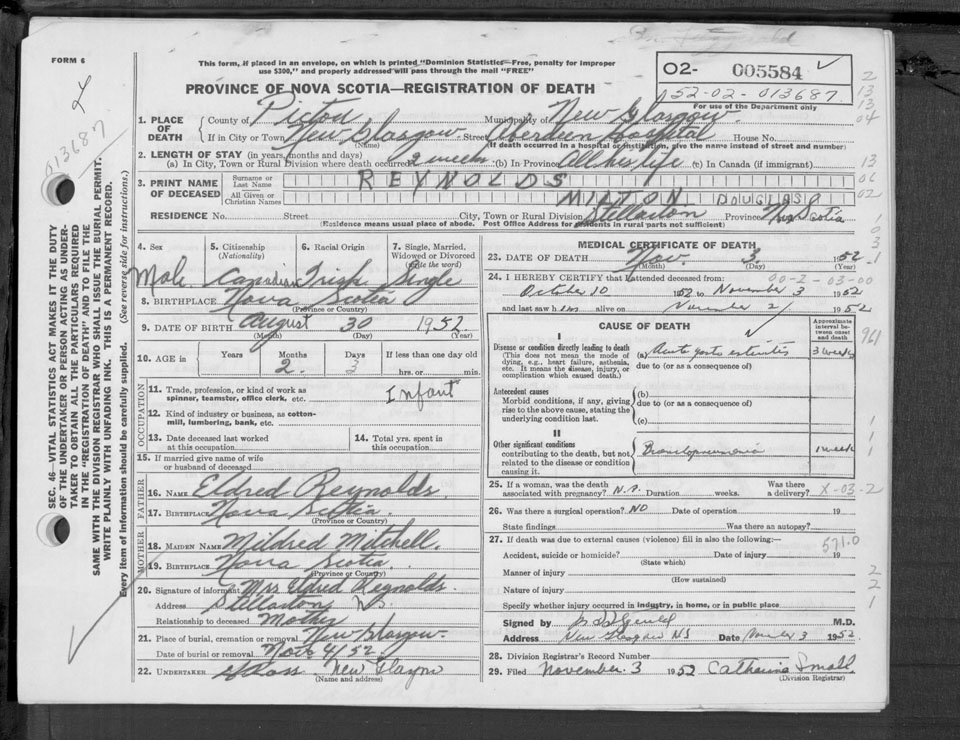 FORM 6
This form, if placed in an envelope, on which is printed "Dominion Statistics—Free, penalty for improper
use $300," and properly addressed will pass through the mail "FREE"
PROVINCE OF NOVA SCOTIA—REGISTRATION OF DEATH
02- 005584
52-02-013687
For use of the Department only
013687
SEC. 46—VITAL STATISTICS ACT MAKES IT THE DUTY
OF THE UNDERTAKER OR PERSON ACTING AS UNDER-
TAKER TO OBTAIN ALL THE PARTICULARS REQUIRED
IN THE "REGISTRATION OF DEATH" AND TO FILE THE
SAME WITH THE DIVISION REGISTRAR WHO SHALL ISSUE THE BURIAL PERMIT.
WRITE PLAINLY WITH UNFADING INK. THIS IS A PERMANENT RECORD.
Every item of Information should be carefully supplied. (See reverse side for instructions.)
1. PLACE OF DEATH
County of Pictou Municipality of New Glasgow.
If in City or Town New Glasgow Street Aberdeen Hospital House No.
(Name) (If death occurred in a hospital or institution, give the name instead of street and number)
2. LENGTH OF STAY (in years, months and days)
(a) In City, Town or Rural Division where death occurred 2 weeks (b) In Province All his life (c) In Canada (if immigrant)
3. PRINT NAME OF DECEASED
Surname or Last Name REYNOLDS
All Given or Christian Names MILTON DOUGLAS
RESIDENCE No. Street City, Town or Rural Division Stellarton Province Nova Scotia
(Residence means usual place of abode. Post Office Address for residents in rural parts not sufficient)
4. Sex Male
5. Citizenship (Nationality) Canadian
6. Racial Origin Irish
7. Single, Married, Widowed or Divorced (Write the word) Single
8. BIRTHPLACE Nova Scotia
(Province or Country)
9. DATE OF BIRTH August 30 1952.
(Month) (Day) (Year)
10. AGE in Years Months 2. Days 3 If less than one day old
hrs. or min.
OCCUPATION
11. Trade, profession, or kind of work as
spinner, teamster, office clerk, etc. Infant
12. Kind of industry or business, as cotton-
mill, lumbering, bank, etc.
13. Date deceased last worked
at this occupation
14. Total yrs. spent in
this occupation
15. If married give name of wife
or husband of deceased
FATHER
16. NAME Eldred Reynolds.
17. BIRTHPLACE Nova Scotia.
(Province or Country)
MOTHER
18. MAIDEN NAME Mildred Mitchell.
19. BIRTHPLACE Nova Scotia.
(Province or Country)
20. Signature of informant Mrs Eldred Reynolds.
Address Stellarton N.S.
Relationship to deceased Mother
21. Place of burial, cremation or removal New Glasgow.
Date of burial or removal Nov. 4/52.
22. UNDERTAKER New Glasgow
(Name and address)
MEDICAL CERTIFICATE OF DEATH
23. DATE OF DEATH Nov. 3. 1952.
(Month) (Day) (Year)
24. I HEREBY CERTIFY that I attended deceased from: 00-2-03-00
October 10 1952 to November 3 1952
and last saw him alive on November 2 1952
CAUSE OF DEATH
Approximate interval between onset and death
I
Disease or condition directly leading to death
(This does not mean the mode of
dying, e.g., heart failure, asthenia,
etc. It means the disease, injury, or
complication which caused death.)
(a) Acute gastro enteritis 3 weeks
due to (or as a consequence of)
Antecedent causes
Morbid conditions, if any, giving
rise to the above cause, stating the
underlying condition last.
(b)
due to (or as a consequence of)
(c)
II
Other significant conditions
contributing to the death, but not
related to the disease or condition
causing it.
Bronchopneumonia 1 week
25. If a woman, was the death
associated with pregnancy? N.A. Duration weeks. Was there
a delivery? X-03-2
26. Was there a surgical operation? NO Date of operation 19
State findings Was there an autopsy?
27. If death was due to external causes (violence) fill in also the following:—
571.0
Accident, suicide or homicide? Date of injury 19
(State which)
Manner of injury
(How sustained)
Nature of injury
Specify whether injury occurred in industry, in home, or in public place
Signed by M.D.
Address New Glasgow NS Date November 3 1952
28. Division Registrar's Record Number
29. Filed November 3 1952 Catharine Small
(Division Registrar)
2
13
13
04
13
06
02
1
0
3
1
961
1
1
1
2
2
1